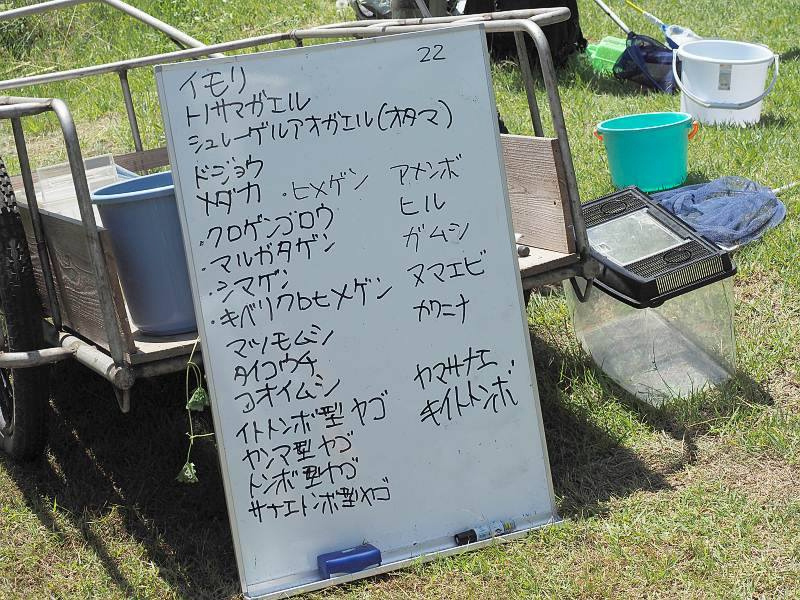 22
イモリ
トノサマガエル
シュレーゲルアオガエル(オタマ)
ドジョウ
メダカ ・ヒメゲン アメンボ
・クロゲンゴロウ ヒル
・マルガタゲン ガムシ
・シマゲン ヌマエビ
・キベリクロヒメゲン カワニナ
マツモムシ
タイコウチ ヤマサナエ
コオイムシ キイトトンボ
イトトンボ型 ヤゴ
ヤンマ型 ヤゴ
トンボ型ヤゴ
サナエトンボ型ヤゴ